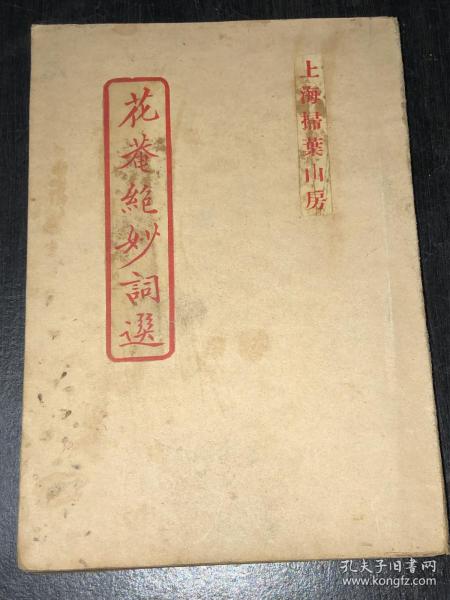 上海掃葉山房
花菴絕妙詞選
孔夫子旧书网
www.kongfz.com